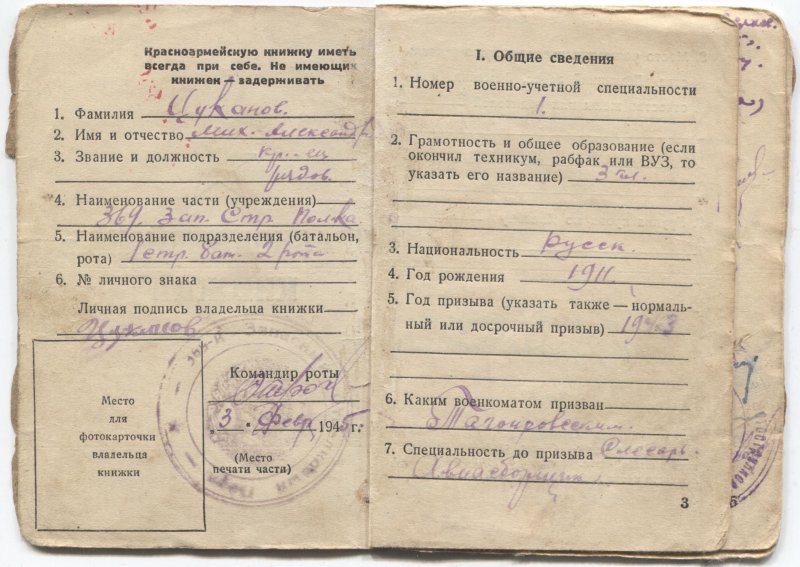 Красноармейскую книжку иметь
всегда при себе. Не имеющих
книжек — задерживать
1. Фамилия Цуканов.
2. Имя и отчество Мих. Александр
3. Звание и должность кр-ец
рядов.
4. Наименование части (учреждения)
369 Зап. Стр. Полка
5. Наименование подразделения (батальон,
рота) 1 стр. бат. 2 рота
6. № личного знака
Личная подпись владельца книжки
Цуканов
Место
для
фотокарточки
владельца
книжки
Командир роты
3 Февр 1945 г.
(Место
печати части)
I. Общие сведения
1. Номер военно-учетной специальности
1.
2. Грамотность и общее образование (если
окончил техникум, рабфак или ВУЗ, то
указать его название) 3 кл.
3. Национальность Русск.
4. Год рождения 1911.
5. Год призыва (указать также — нормаль-
ный или досрочный призыв) 1943
6. Каким военкоматом призван
7. Специальность до призыва Слесарь
Авиасборщик
3